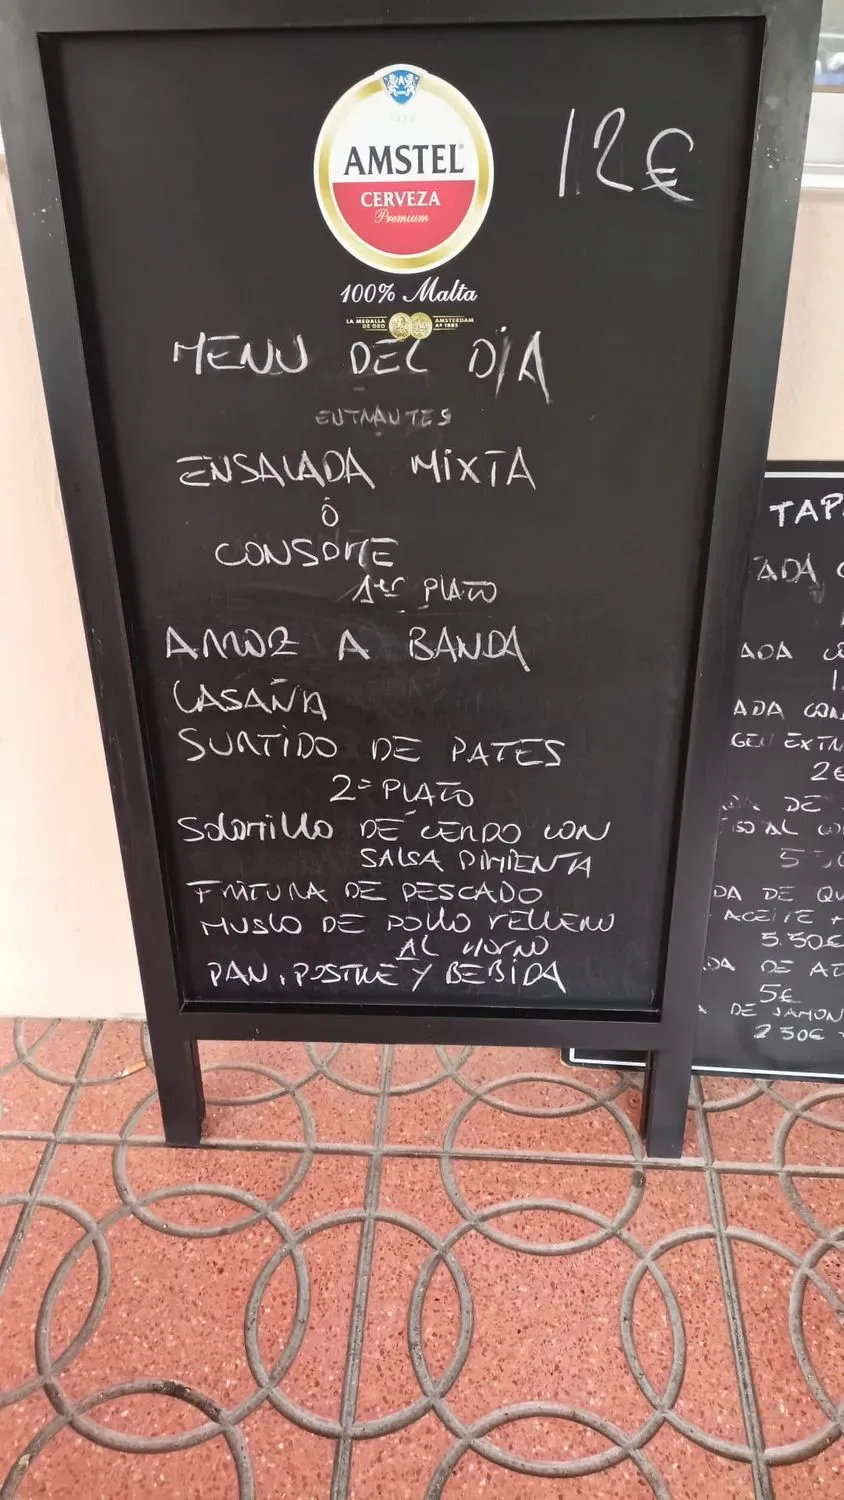 AMSTEL
CERVEZA
Premium
100% Malta
LA MEDALLA DE ORO
AMSTERDAM Aº 1883
12€
MENU DEL DÍA
ENTRANTES
ENSALADA MIXTA
Ó
CONSOME
1er PLATO
ARROZ A BANDA
LASAÑA
SURTIDO DE PATES
2º PLATO
SOLOMILLO DE CERDO CON
SALSA PIMIENTA
FRITURA DE PESCADO
MUSLO DE POLLO RELLENO
AL HORNO
PAN, POSTRE Y BEBIDA
TAP
ADA
ADA CO
ADA CON
GEN EXTR
2€
DE
AL
DA DE QU
ACEITE +
5.50€
DA DE AT
5€
DE JAMON
2 50€